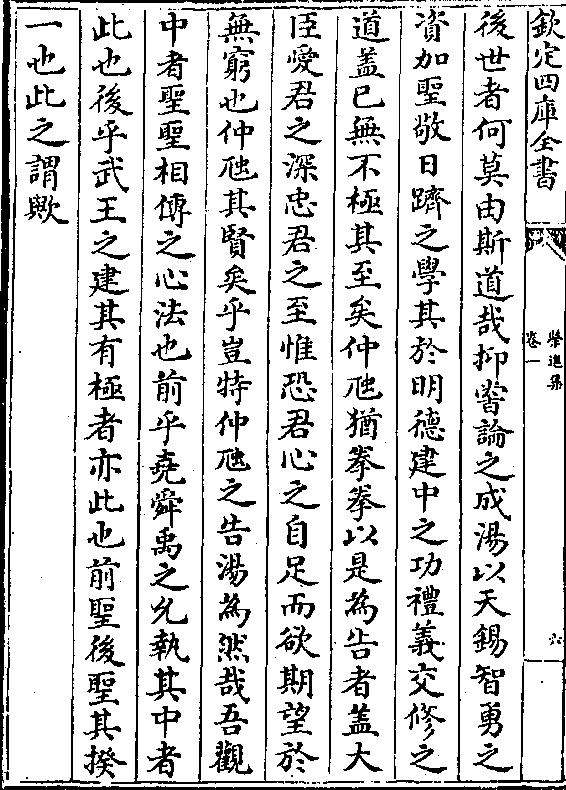 欽定四庫全書
榮進集
卷一
六
後世者何莫由斯道哉抑嘗論之成湯以天錫智勇之
資加聖敬日躋之學其於明德建中之功禮義交修之
道盖已無不極其至矣仲虺猶拳拳以是為告者盖大
臣愛君之深忠君之至惟恐君心之自足而欲期望於
無窮也仲虺其賢矣乎豈特仲虺之告湯為然哉吾觀
中者聖聖相傳之心法也前乎堯舜禹之允執其中者
此也後乎武王之建其有極者亦此也前聖後聖其揆
一也此之謂歟